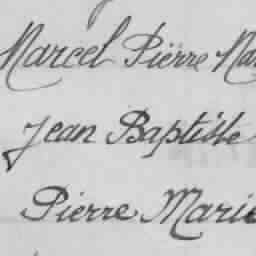 Marcel Pierre Mar
Jean Baptiste
Pierre Marie